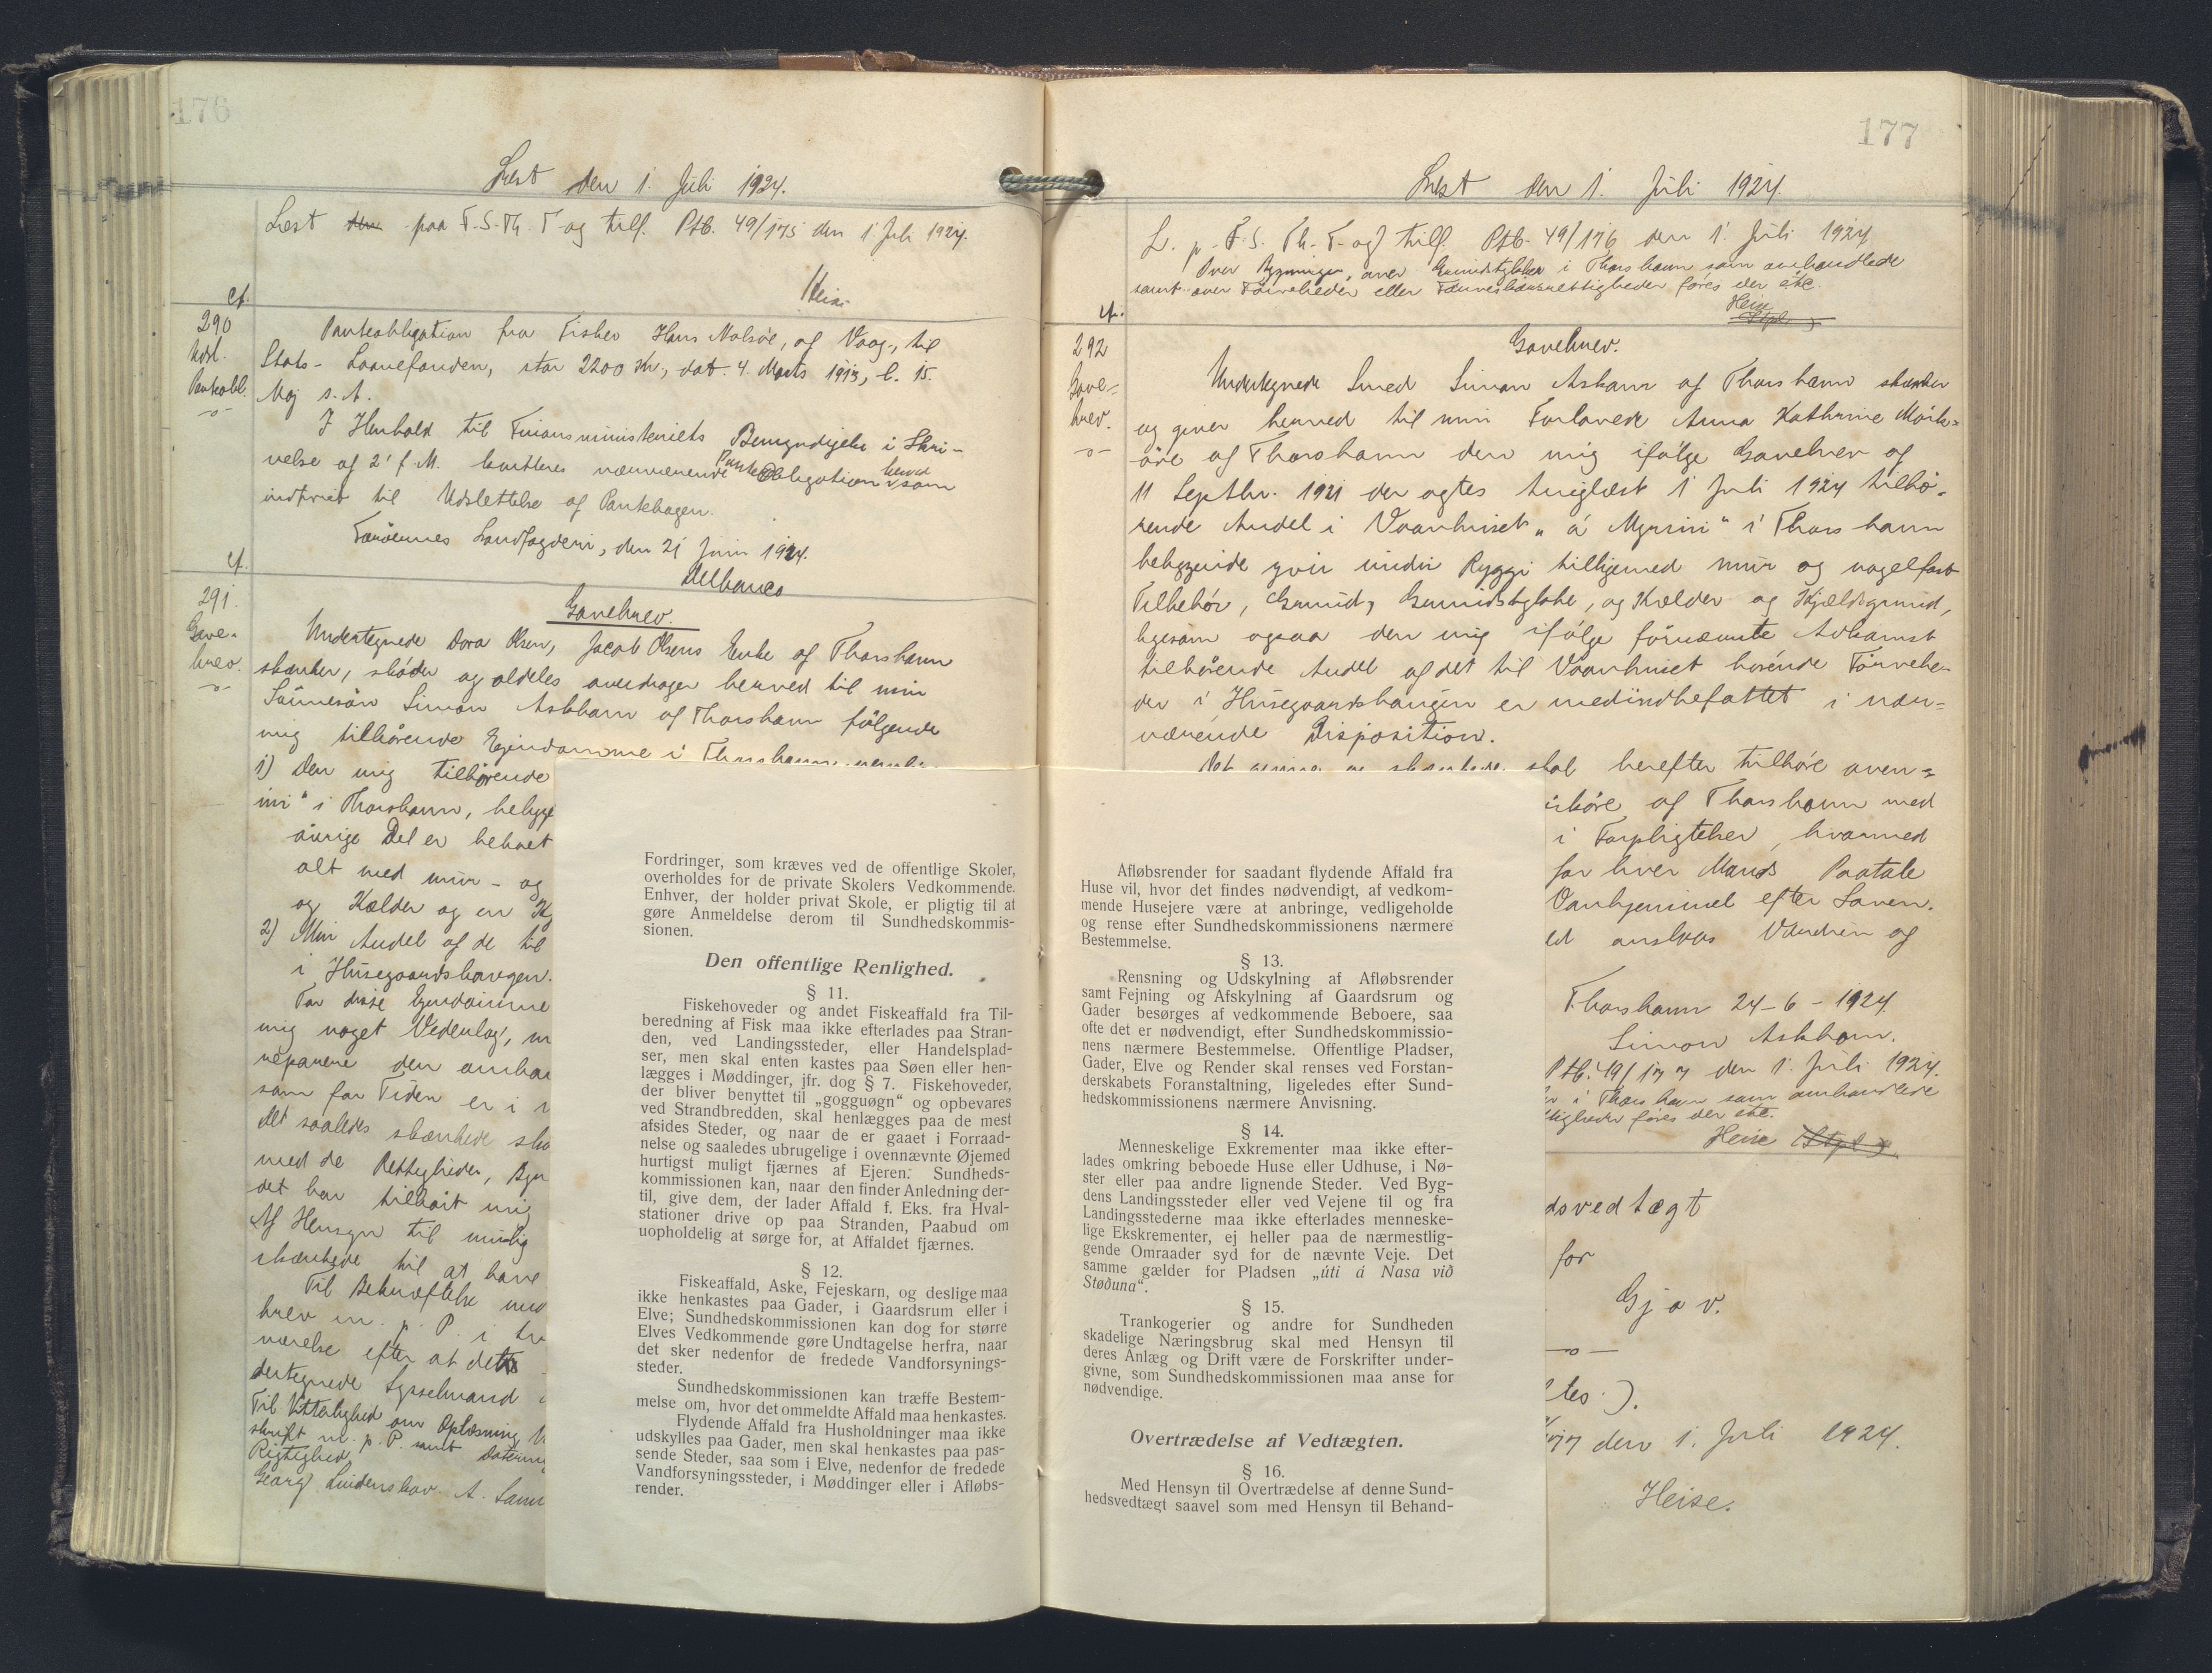 176
Læst den 1. Juli 1924.
Læst den paa F.S.Th. T og tilf. Ptb. 49/175 den 1 Juli 1924.
Heise
cf.
290
Udsl.
Pantobl.
Panteobligation fra Fisker Hans Nolsöe, af Vaag, til
Stats-Laanefonden, stor 2200 Kr., dat. 4. Marts 1913, l. 15.
Maj s. A.
I Henhold til Finansministeriets Bemyndigelse i Skri-
velse af 2' f. M. kvitteres nærværende Panteobligation herved som
indfriet til Udslettelse af Pantebogen.
Færøernes Landfogderi, den 21 Juni 1924.
cf.
291.
Gave-
brev.
Gavebrev.
Undertegnede Dora Olsen, Jacob Olsens Enke af Thorshavn
skænker, skøder og aldeles overdrager herved til min
Sønnesön Simon Askham af Thorshavn følgende
mig tilhørende Ejendomme i Thorshavn, nemlig
1) Den mig tilhørende
ini" i Thorshavn, belig
øvrige Del er beboet
alt med mur- og
og Kælder og en Kj
2) Min Andel af de til
i Husegaardshavgen.
For disse Ejendomme
mig noget Vederlag, m
reparere den omha
som for Tiden er i
Det saaledes skænkede ska
med de Rettigheder, Byr
det har tilhört mig
Af Hensyn til mulig
skænkede til at have
Til Bekræftelse med
brev m. p. P. i
værelse efter at dette
dertegnede Sysselmand
Til Vitterlighed om Oplæsning
skrift m. p. P. samt Datering
Rigtighed
Georg Lindenskov. A. Sam
Fordringer, som kræves ved de offentlige Skoler,
overholdes for de private Skolers Vedkommende.
Enhver, der holder privat Skole, er pligtig til at
gøre Anmeldelse derom til Sundhedskommis-
sionen.
Den offentlige Renlighed.
§ 11.
Fiskehoveder og andet Fiskeaffald fra Til-
beredning af Fisk maa ikke efterlades paa Stran-
den, ved Landingssteder, eller Handelsplad-
ser, men skal enten kastes paa Søen eller hen-
lægges i Møddinger, jfr. dog § 7. Fiskehoveder,
der bliver benyttet til „gogguøgn“ og opbevares
ved Strandbredden, skal henlægges paa de mest
afsides Steder, og naar de er gaaet i Forraad-
nelse og saaledes ubrugelige i ovennævnte Øjemed
hurtigst muligt fjærnes af Ejeren. Sundheds-
kommissionen kan, naar den finder Anledning der-
til, give dem, der lader Affald f. Eks. fra Hval-
stationer drive op paa Stranden, Paabud om
uopholdelig at sørge for, at Affaldet fjærnes.
§ 12.
Fiskeaffald, Aske, Fejeskarn, og deslige maa
ikke henkastes paa Gader, i Gaardsrum eller i
Elve; Sundhedskommissionen kan dog for større
Elves Vedkommende gøre Undtagelse herfra, naar
det sker nedenfor de fredede Vandforsynings-
steder.
Sundhedskommissionen kan træffe Bestem-
melse om, hvor det ommeldte Affald maa henkastes.
Flydende Affald fra Husholdninger maa ikke
udskylles paa Gader, men skal henkastes paa pas-
sende Steder, saa som i Elve, nedenfor de fredede
Vandforsyningssteder, i Møddinger eller i Afløbs-
render.
177
Læst den 1. Juli 1924.
L. p. F. S. Th. T. og tilf. Ptb. 49/176 den 1. Juli 1924
Over Bygninger, over Grundstykker i Thorshavn som omhandlede
samt over Tørveheder eller Tørveskærsrettigheder føres der etc.
Heise
(Stpl.)
cf.
292
Gave-
brev.
Gavebrev.
Undertegnede Smed Simon Askham af Thorshavn skænker
og giver herved til min Forlovede Anna Kathrine Mörk-
öre af Thorshavn den mig ifølge Gavebrev af
11 Septbr. 1921 der agtes tinglæst 1 Juli 1924 tilhö-
rende Andel i Vaanhuset „á Myrini“ i Thorshavn
beliggende yvir undir Ryggi tilligemed mur og nagelfast
Tilbehör, Grund, Grundstykke, og Kælder og Kjældergrund,
ligesom ogsaa den mig ifølge förnævnte Adkomst
tilhörende Andel af det til Vaanhuset hörende Törvehe-
der i Husegaardshaugen er medindbefattet i nær-
værende Disposition.
skal herefter tilhöre oven-
irköre af Thorshavn med
i Forpligtelser, hvormed
for hver Mands Paatale
Vanhjemmel efter Loven.
ed anslaas Værdien og
Thorshavn 24-6-1924.
Simon Askham.
Ptb. 49/177 den 1. Juli 1924.
i Thorshavn som omhandlede
tigheder føres der etc.
Heise (Stpl.)
dsvedtægt
for
Gjov.
ltes.).
/177 den 1. Juli 1924.
Heise.
Afløbsrender for saadant flydende Affald fra
Huse vil, hvor det findes nødvendigt, af vedkom-
mende Husejere være at anbringe, vedligeholde
og rense efter Sundhedskommissionens nærmere
Bestemmelse.
§ 13.
Rensning og Udskylning af Afløbsrender
samt Fejning og Afskylning af Gaardsrum og
Gader besørges af vedkommende Beboere, saa
ofte det er nødvendigt, efter Sundhedskommissio-
nens nærmere Bestemmelse. Offentlige Pladser,
Gader, Elve og Render skal renses ved Forstan-
derskabets Foranstaltning, ligeledes efter Sund-
hedskommissionens nærmere Anvisning.
§ 14.
Menneskelige Exkrementer maa ikke efter-
lades omkring beboede Huse eller Udhuse, i Nø-
ster eller paa andre lignende Steder. Ved Byg-
dens Landingssteder eller ved Vejene til og fra
Landingsstederne maa ikke efterlades menneske-
lige Ekskrementer, ej heller paa de nærmestlig-
gende Omraader syd for de nævnte Veje. Det
samme gælder for Pladsen „úti á Nasa við
Støðuna“.
§ 15.
Trankogerier og andre for Sundheden
skadelige Næringsbrug skal med Hensyn til
deres Anlæg og Drift være de Forskrifter under-
givne, som Sundhedskommissionen maa anse for
nødvendige.
Overtrædelse af Vedtægten.
§ 16.
Med Hensyn til Overtrædelse af denne Sund-
hedsvedtægt saavel som med Hensyn til Behand-